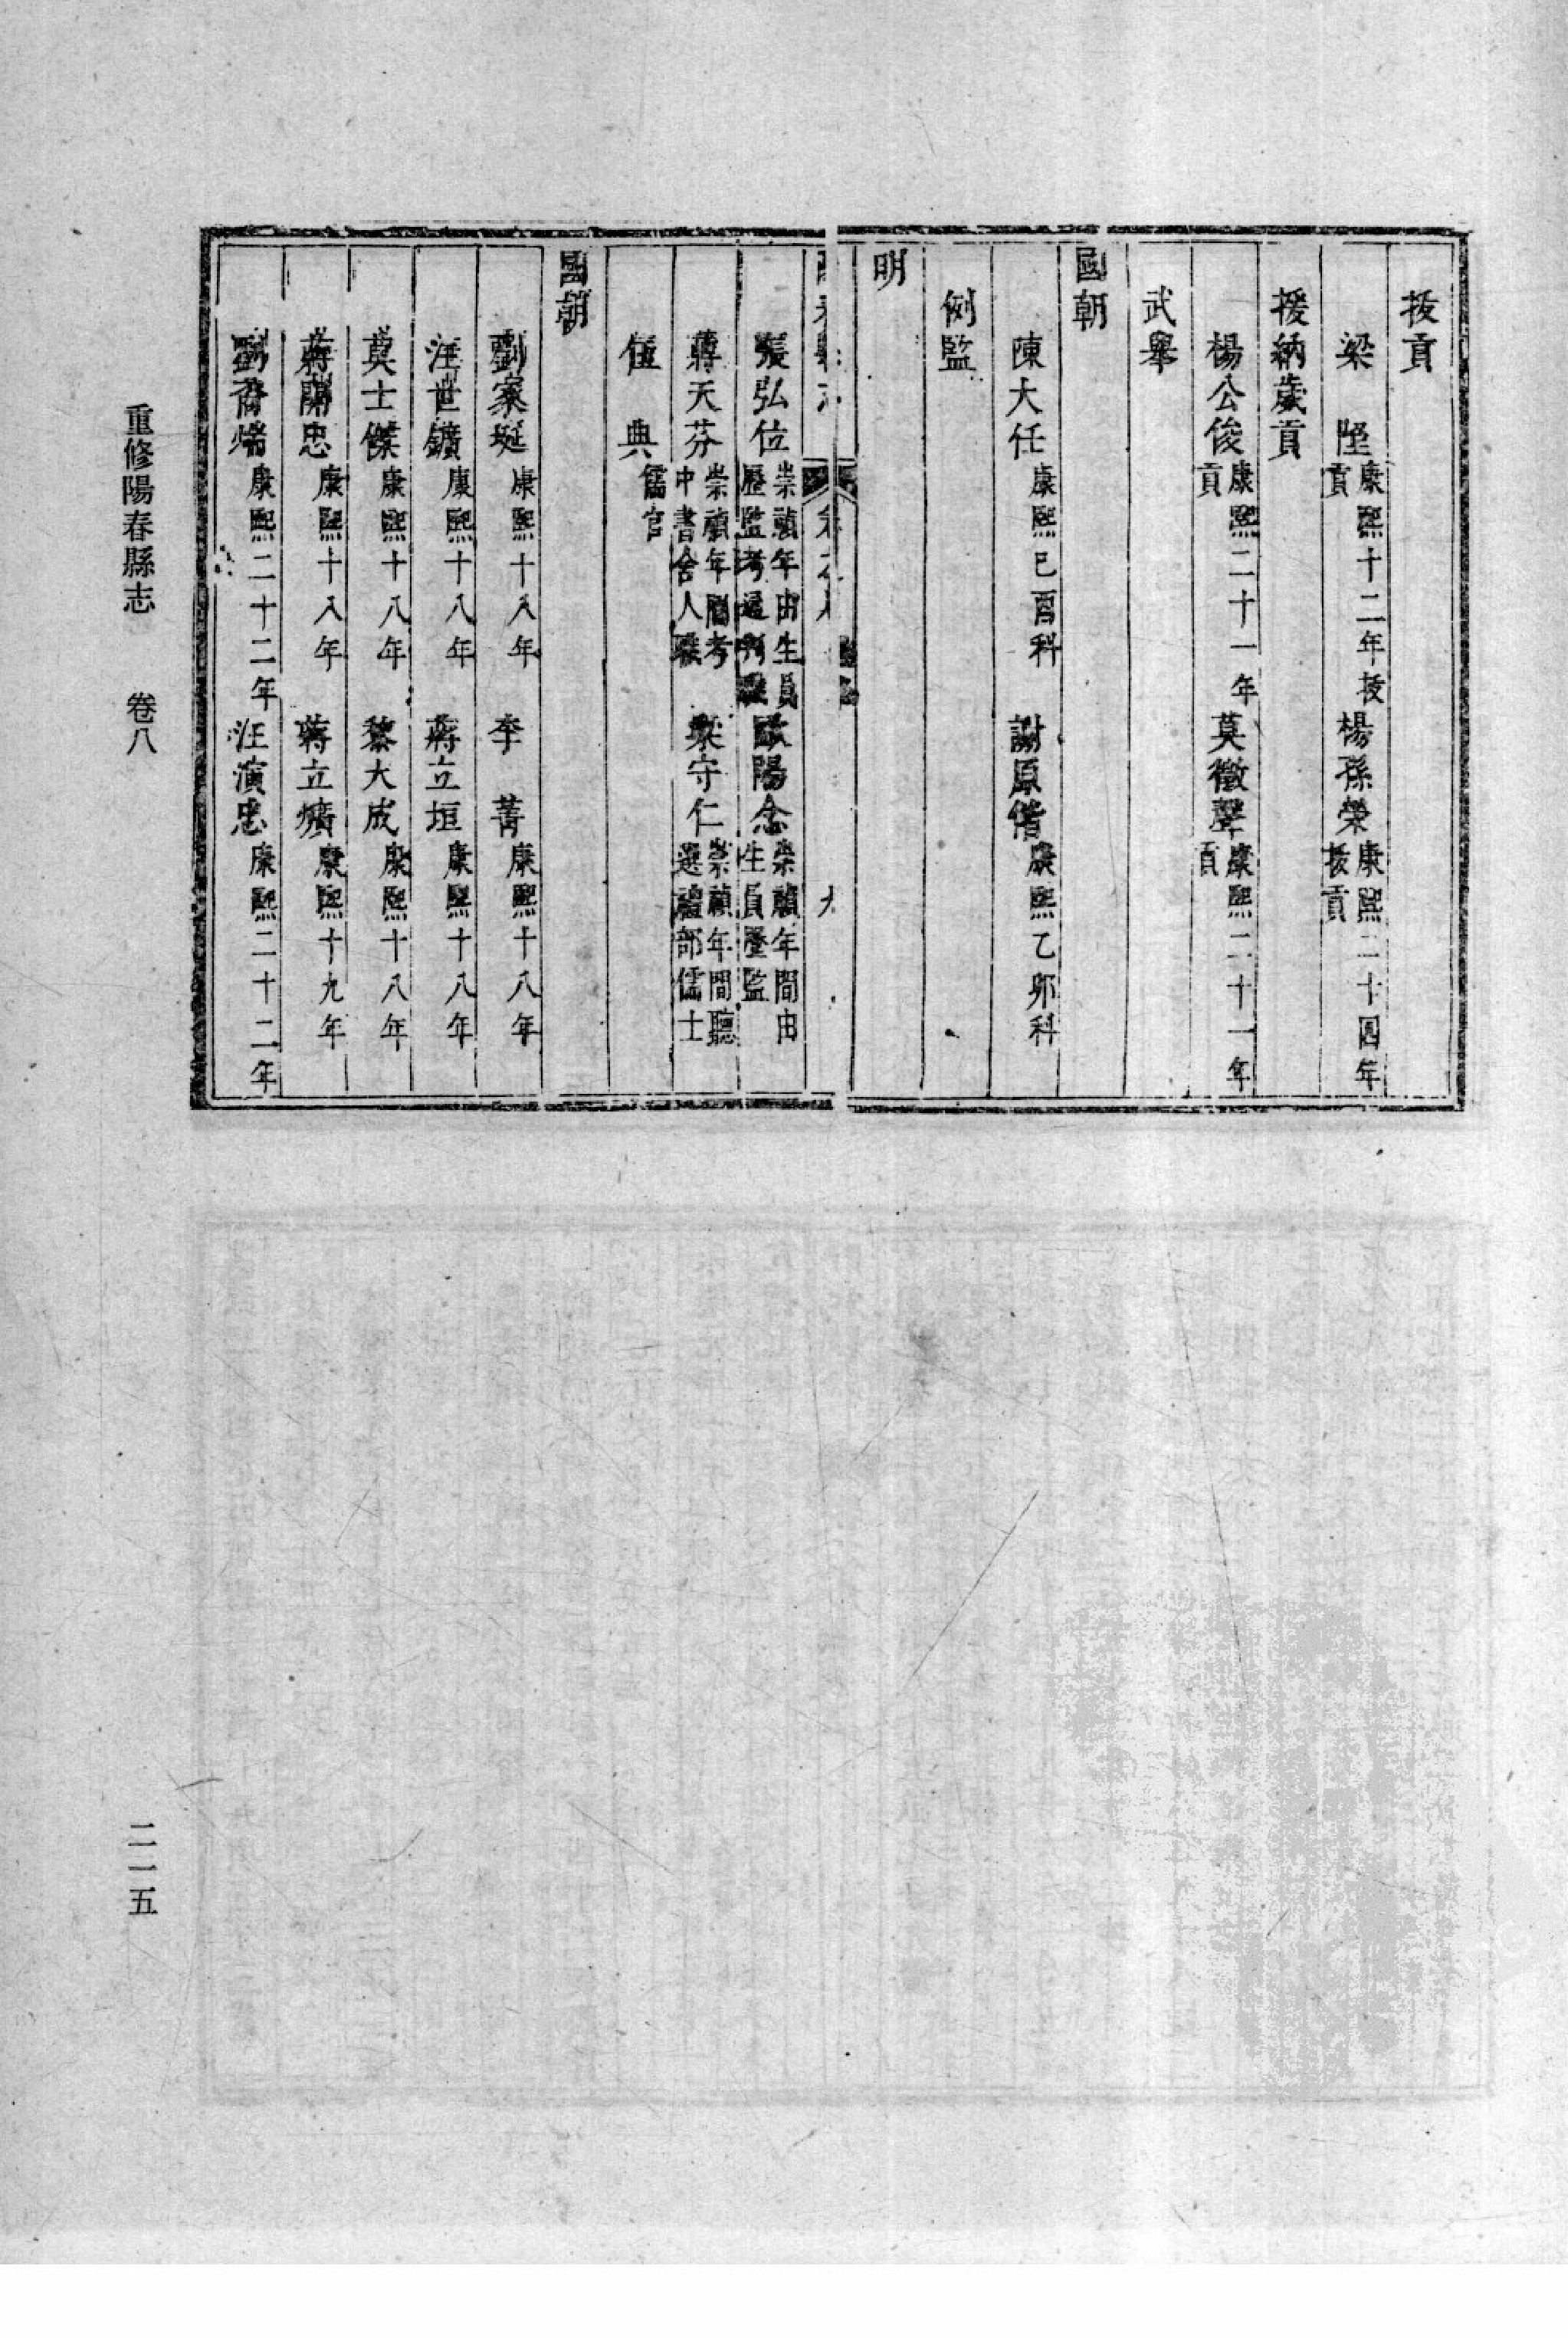 拔貢
梁　陞康熙十二年拔貢　楊孫榮康熙二十四年拔貢
援納歲貢
楊公俊康熙二十一年貢　莫徵澤康熙二十一年貢
武舉
國朝
陳大任康熙己酉科　謝原偕康熙乙卯科
例監
明
卷之八　九
張弘位崇禎年由生員歷監考通判職　歐陽念崇禎年間由生員歷監
蔣天芬崇禎年間考中書舍人職　守仁崇禎年間聽選禮部儒士
伍　典儒官
國朝
劉家珽康熙十八年　李　菁康熙十八年
汪世鑛康熙十八年　蔣立垣康熙十八年
莫士傑康熙十八年　黎大成康熙十八年
蔣蘭忠康熙十八年　蔣立爌康熙十九年
劉裔康熙二十二年　汪演忠康熙二十二年
重修陽春縣志　卷八
二一五